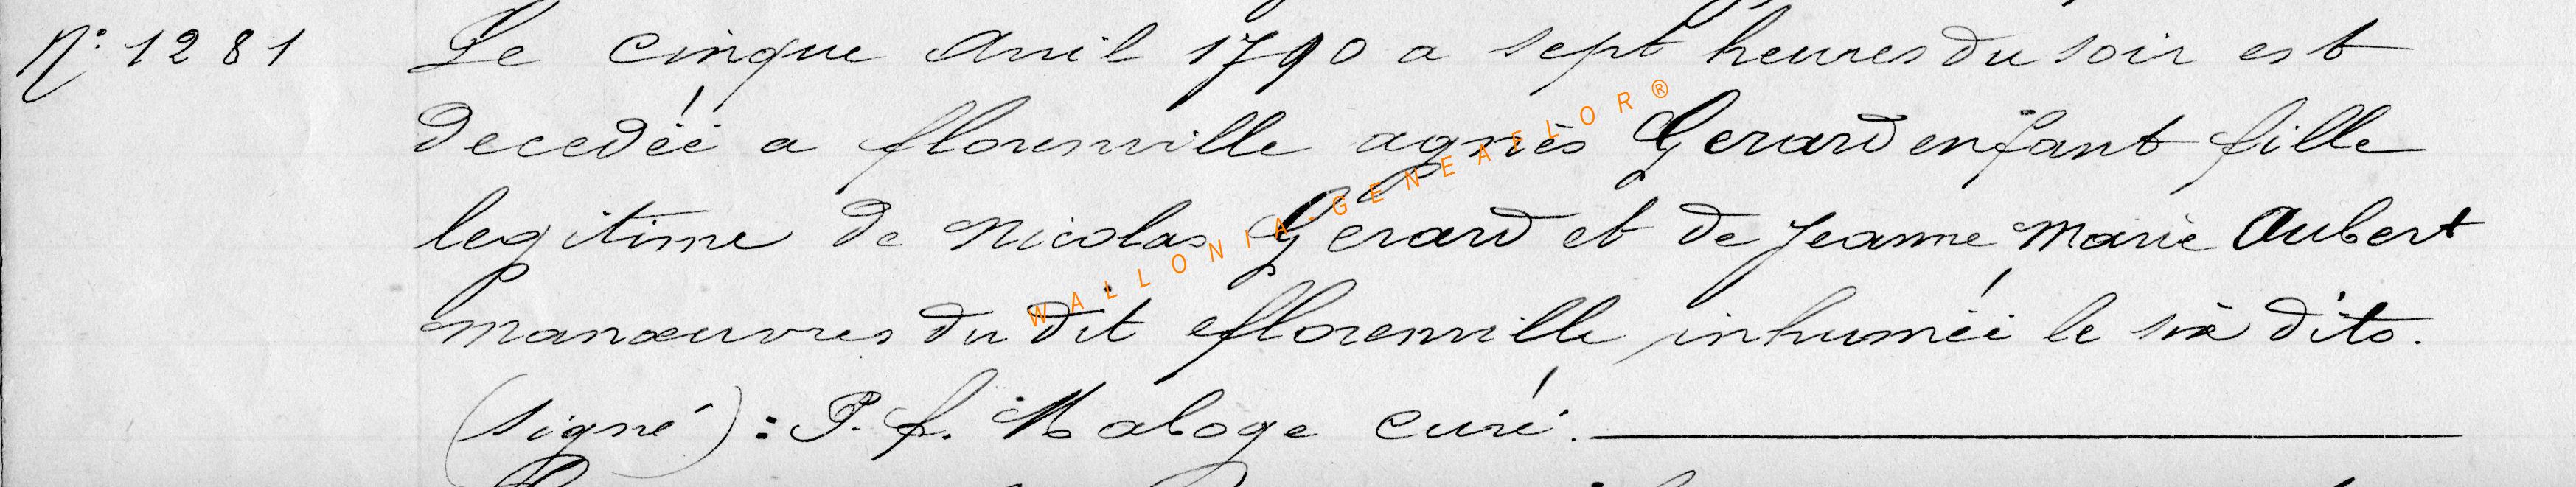 N°: 1281 Le cinque avril 1790 a sept heures du soir est
decedéé a florenville agnès Gerard enfant fille
legitime de Nicolas Gerard et de Jeanne Marie Aubert
manœuvres du dit florenville inhuméé le six dito.
(signé): P. f. Maboge curé.
WALLONIA-GENEAELOR®